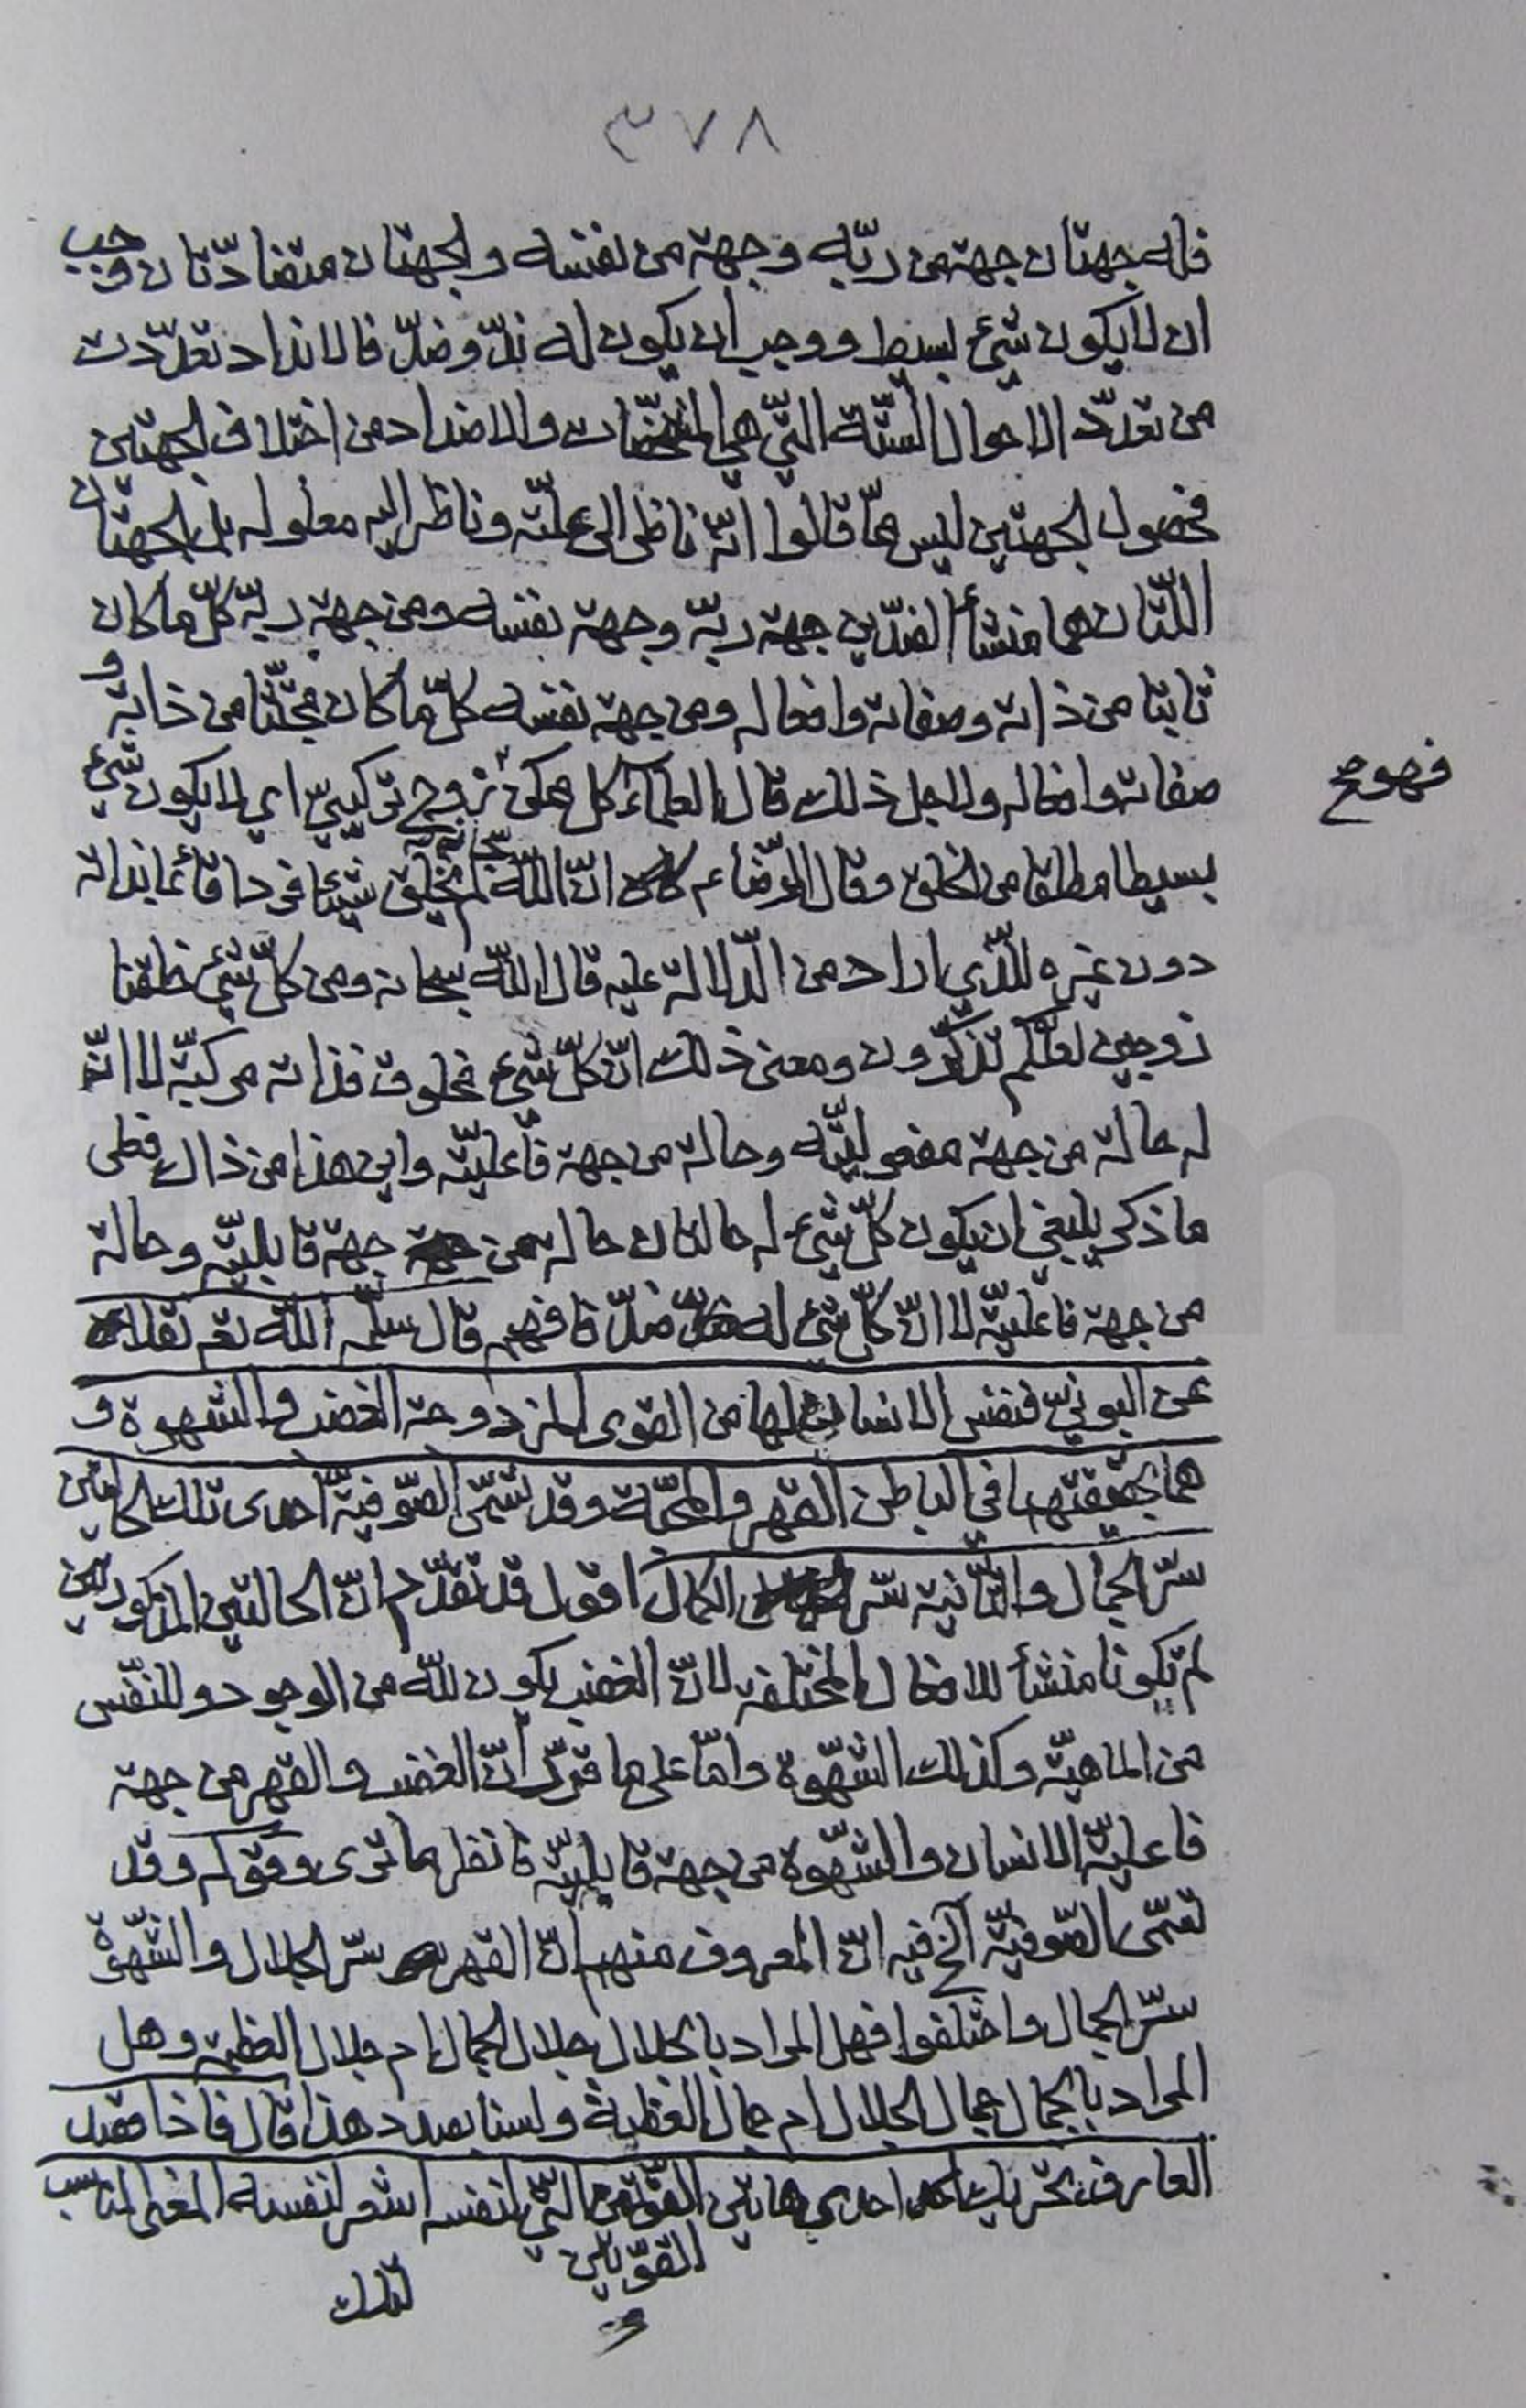 ٣٧٨
فله جهتان جهة من ربّه وجهة من نفسه والجهتان متضادّتان وجب
ان لا يكون شيء بسيط ووجب ان يكون له ندّ وضدّ فالانداد تعدّدت
من تعدّد الاحوال الستّة التّي هي المشخّصات والاضداد من اختلاف الجهتين
فحصول الجهتين ليس ممّا قالوا انّه ناظر الى علّته وناظر اليه معلوله بل الجهتان
اللّتان هما منشأ الضدّين جهة ربّه وجهة نفسه ومن جهة ربّه كلّ ما كان
ثابتا من ذاته وصفاته وافعاله ومن جهة نفسه كلّ ما كان مجتثّا من ذاته و
صفاته وافعاله ولاجل ذلك قال العلماء كل ممكن زوج تركيبيّ اي لا يكون شيء
فهو مح
بسيطا مطلقا من الخلق وقال الرّضا ع انّ اللّه سبحانه لم يخلق شيئا فردا قائما بذاته
دون غيره للّذي اراد من الدّلالة عليه قال اللّه سبحانه ومن كلّ شيء خلقنا
زوجين لعلّكم تذكّرون ومعنى ذلك انّ كلّ شيء مخلوق فذاته مركبّة لا انّ
له حالة من جهة مفعوليّته وحالة من جهة فاعليّته واين هذا من ذاك فعلى
ما ذكر ينبغي ان يكون كلّ شيء له حالتان حالة من جهة قابليّته وحالة
من جهة فاعليّته لا انّ كلّ شيء له ضدّ فافهم قال سلّمه اللّه تع نقلا
عن البونيّ فنفس الانسان لها من القوى المزدوجة الغضب والشهوة و
هما بحقيقتهما في الباطن القهر والمحبّة وقد تسمّى الصّوفيّة احدى تلك الحالتين
سرّ الجمال والثّانية سرّ الكمال اقول قد تقدّم انّ الحالتين المذكورتين
لم تكونا منشأ للافعال المختلفة لانّ الغضب يكون للّه من الوجود وللنّفس
من الماهيّة وكذلك الشّهوة وامّا على ما قرّر انّ الغضب والقهر من جهة
فاعليّة الانسان والشّهوة من جهة قابليّته فانظر ما ترى وقوله وقد
تسمّى الصّوفيّة آلخ فيه انّ المعروف منهم انّ القهر سرّ الجلال والشّهوة
سرّ الجمال واختلفوا فهل المراد بالجلال جلال الجمال ام جلال العظمة وهل
المراد بالجمال جمال الجلال ام جمال العظمة ولسنا بصدد هذا قال فاذا قصد
العارف تحريك احدى هاتين القوّتين التّي لنفسه استشعر لنفسه المعنى المناسب
القوّتين
لتلك